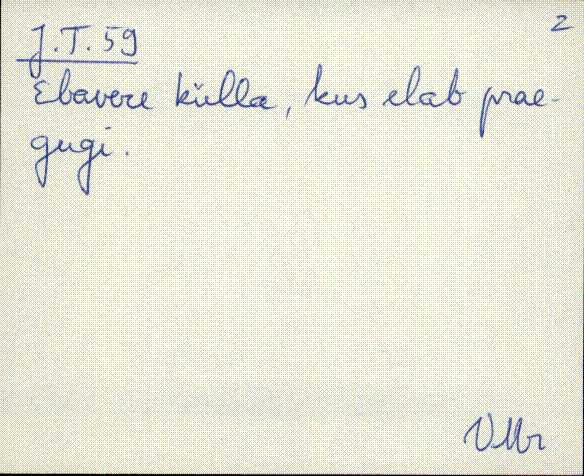 2
J.T. 59
Ebavere külla, kus elab prae-
gugi.
VMr